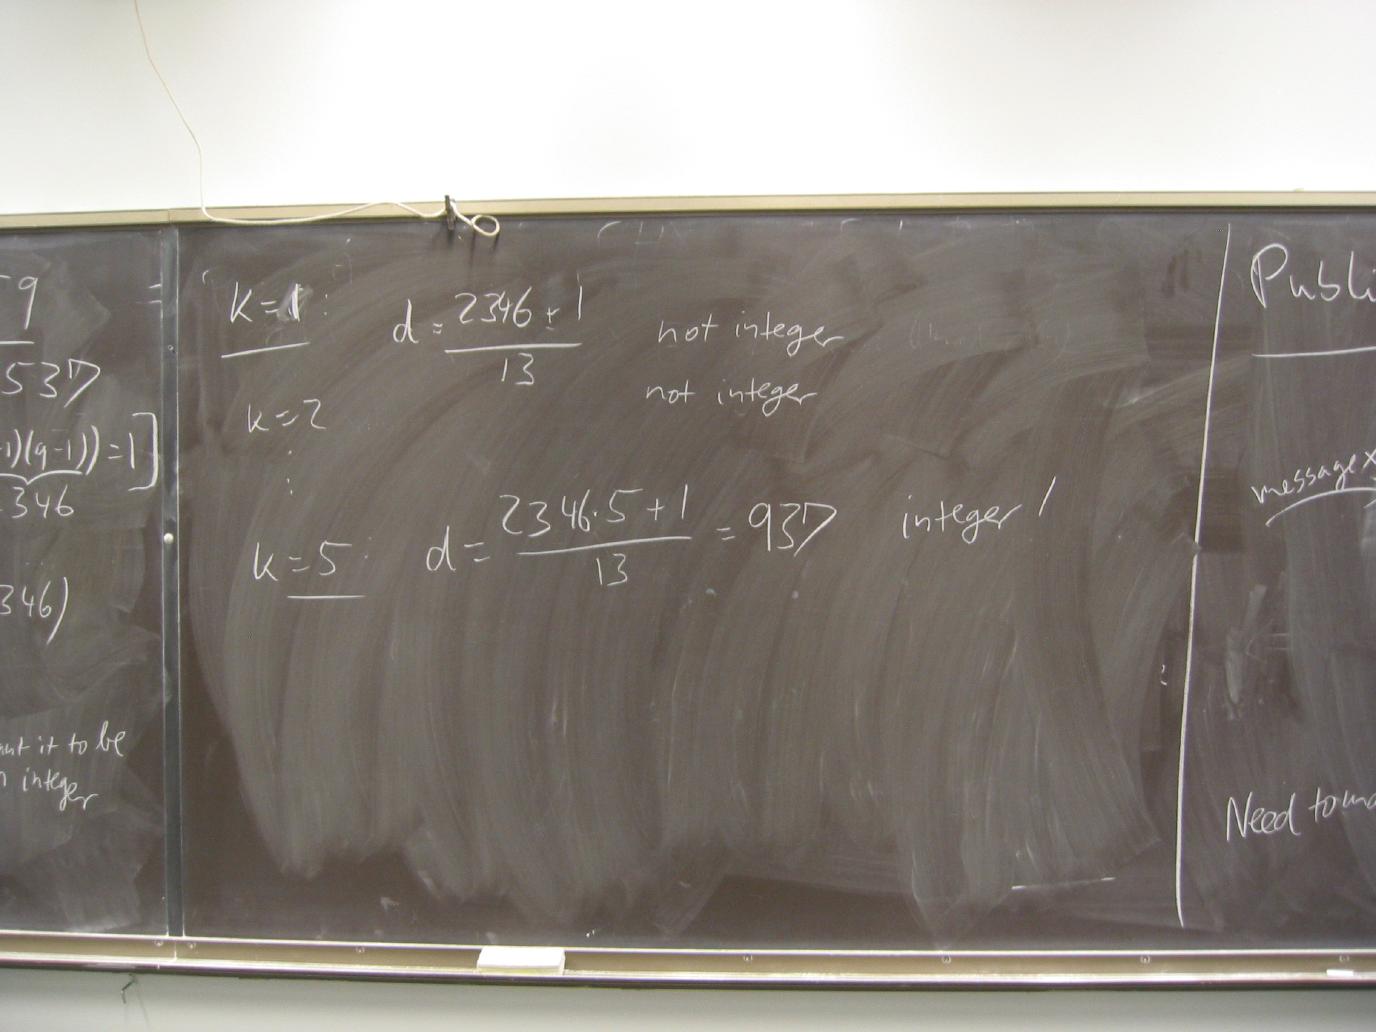 59
537
-1)(q-1))=1]
2346
346)
it to be
integer
k=1:
d = 2346+1 / 13
not integer
k=2
not integer
⋮
k=5:
d = 2346·5+1 / 13 = 937
integer!
Publi
message x
Need to